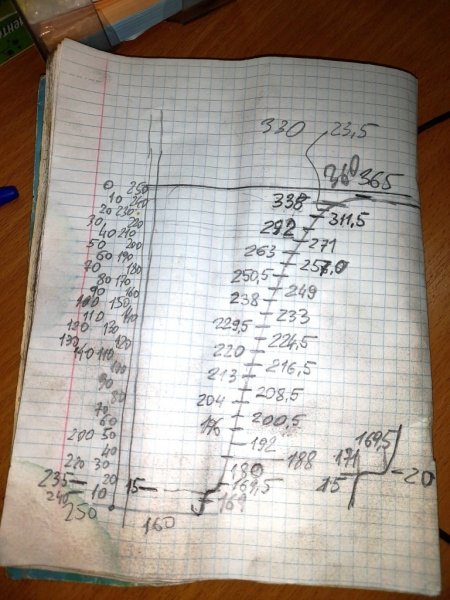 330 23,5
360 365
0 250
10 240 338
20 230 311,5
30 220 292
40 210
50 200 271
60 190 263
70 180 257,0
80 170 250,5
90 160 249
100 150 238
110 140 233
120 130 229,5
130 120 224,5
140 110 220
100 216,5
90 213
80 208,5
70 204
60 200,5
200 50 196 169,5
40 192
220 30 180 188 171
235 20 15 169,5 15 20
240 10 169
250 160